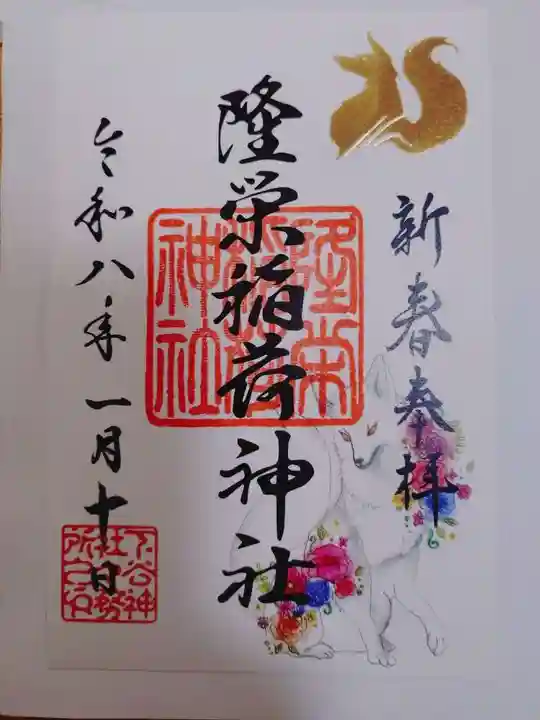 新春奉拝
隆栄稲荷神社
令和八年一月十日
隆栄
稲荷
神社
下谷神
社社務
所之印